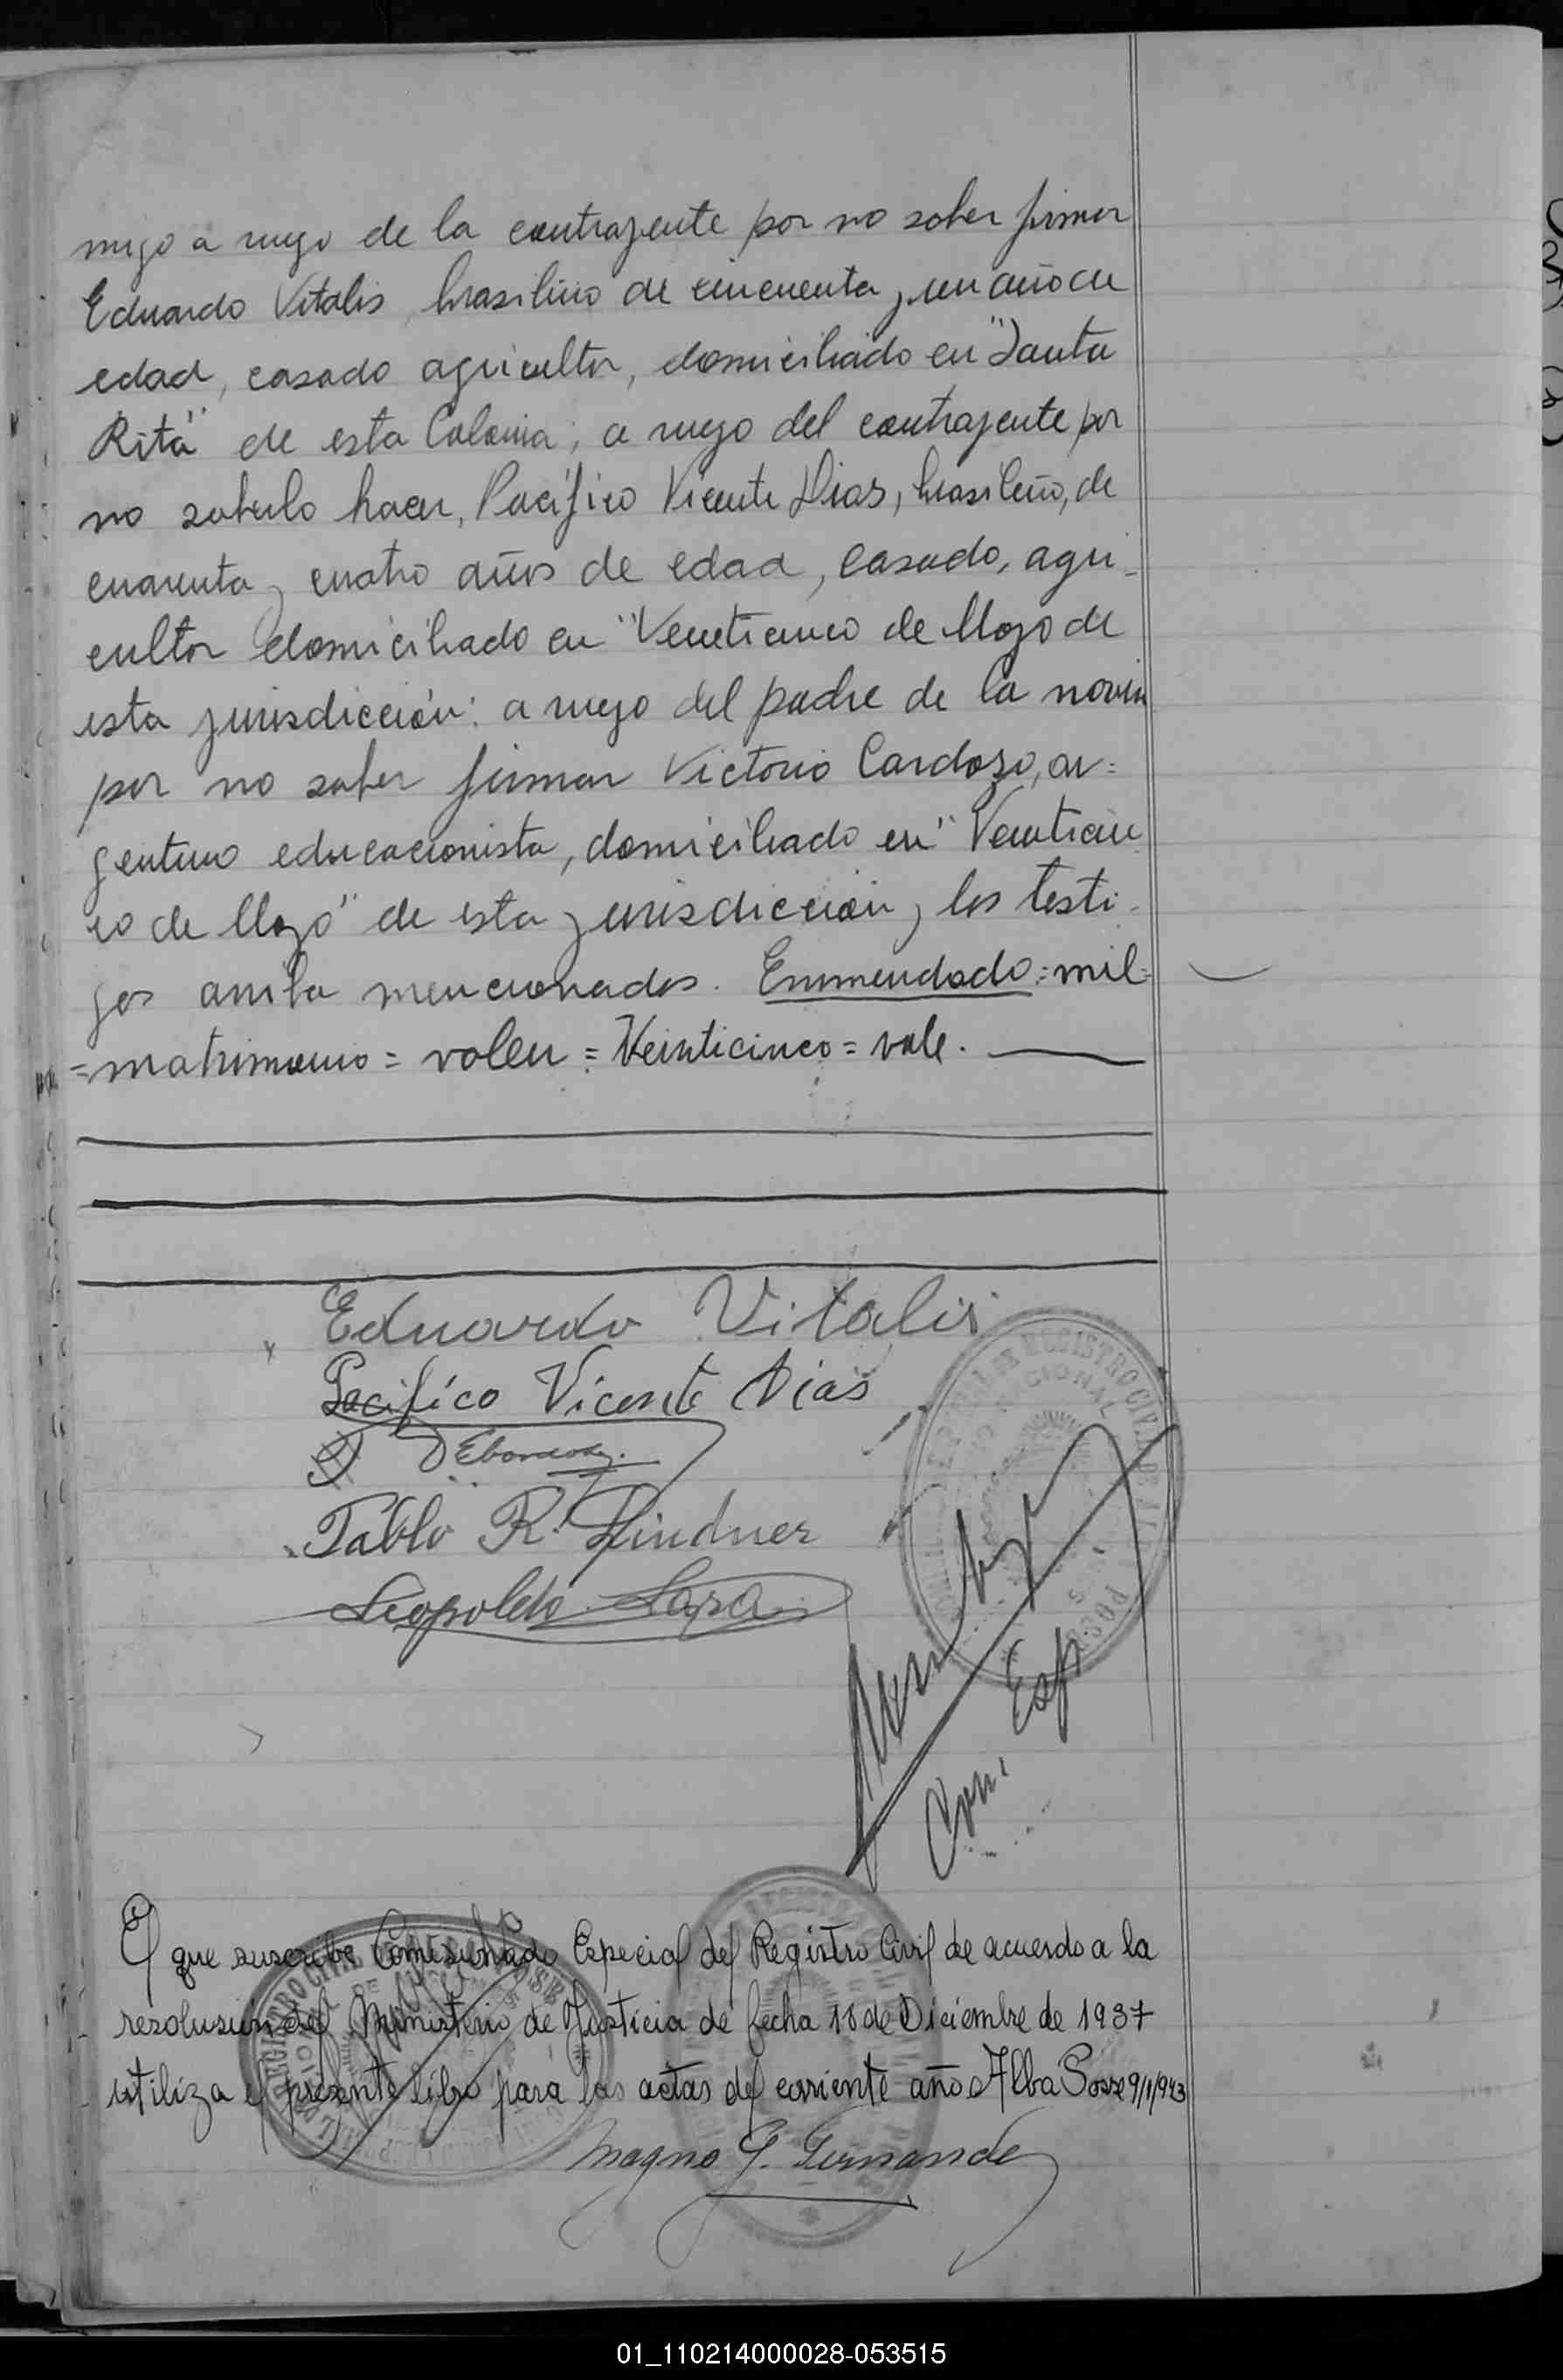 migo a ruego de la contrayente por no saber firmar
Eduardo Vitalis, brasilero de cincuenta y un año de
edad, casado agricultor, domiciliado en "Santa
Rita" de esta Colonia; a ruego del contrayente por
no saberlo hacer, Pacífico Vicente Dias, brasileño, de
cuarenta y cuatro años de edad, casado, agri-
cultor domiciliado en "Veinticinco de Mayo de
esta jurisdicción: a ruego del padre de la novia
por no saber firmar Victorio Cardozo, ar=
gentino educacionista, domiciliado en "Veinticin
co de Mayo" de esta jurisdicción y los testi-
gos arriba mencionados. Enmendado=mil=
=matrimonio=valen=Veinticinco=vale.
Eduardo Vitalis
Pacifico Vicente Dias
Pablo R. Lindner
Leopoldo Lara
Com. Esp.
El que suscribe Comisionado Especial del Registro Civil de acuerdo a la
resolusión del Ministerio de Justicia de fecha 18 de Diciembre de 1937
utiliza el presente libro para las actas del corriente año Alba Posse 9/1/943
Magno G. Fernandez
01_110214000028-053515